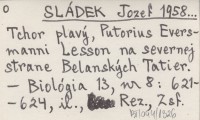 o SLÁDEK Jozef 1958...
Tchor plavý, Putorius Evers-
manni Lesson na severnej
strane Belanských Tatier.
– Biológia 13, nr 8: 621-
-624, il., Rez., Zsf.